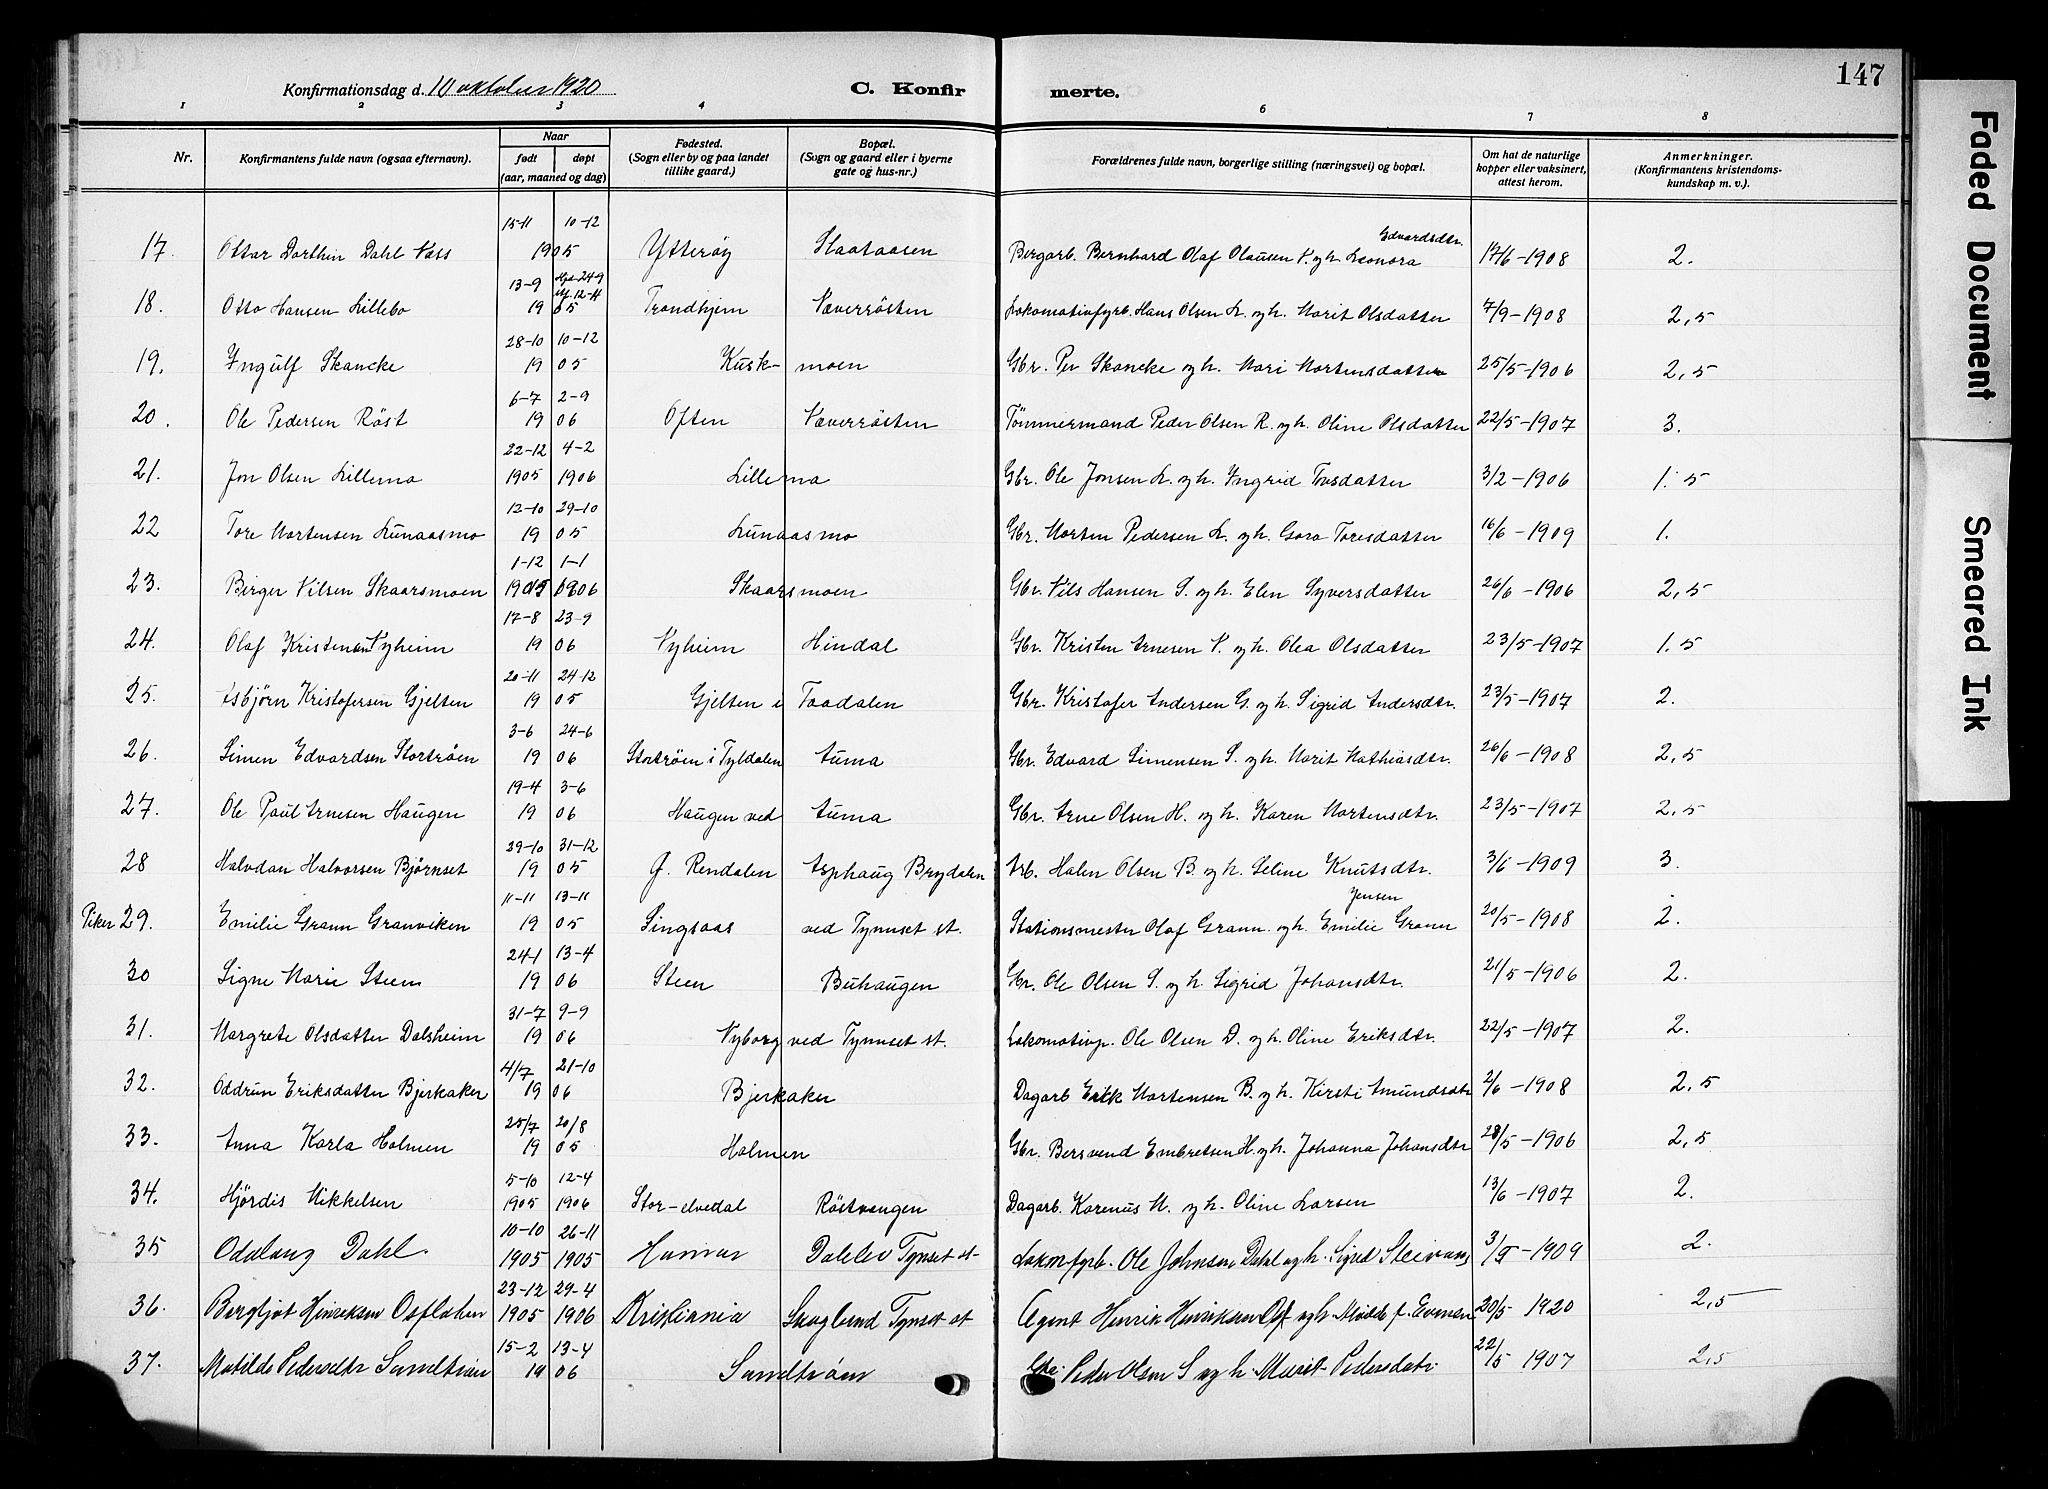 147
Konfirmationsdag d. 10 oktober 1920
C. Konfirmerte.
1 2 3 4 5 6 7 8
Nr.
Konfirmantens fulde navn (ogsaa efternavn).
Naar
født døpt
(aar, maaned og dag)
Fødested.
(Sogn eller by og paa landet
tillike gaard.)
Bopæl.
(Sogn og gaard eller i byerne
gate og hus-nr.)
Forældrenes fulde navn, borgerlige stilling (næringsvei) og bopæl.
Om hat de naturlige
kopper eller vaksinert,
attest herom.
Anmerkninger.
(Konfirmantens kristendoms-
kundskap m. v.).
15-11 10-12 Edvardsdtr.
17. Ottar Dahl Næss 1905 Ytterøy Staataasen Bergarb. Bernhard Olaf Olausen N. og h. Leonora 17/6-1908 2.
13-9 24-9
12-11
18. Otto Hansen Lillebo 19 05 Trondhjem Næverrösten Lokomotivfyrb. Hans Olsen L. og h. Marit Olsdatter 7/9-1908 2,5
28-10 10-12
19. Yngulf Skancke 19 05 Kusk- moen Gbr. Per Skancke og h. Mari Mortensdatter 25/5-1906 2,5
6-7 2-9
20. Ole Pedersen Röst 19 06 Often Næverrösten Tömmermand Peder Olsen R. og h. Oline Olsdatter 22/5-1907 3.
22-12 4-2
21. Jon Olsen Lillemo 1905 1906 Lillemo Gbr. Ole Jonsen L. og h. Yngrid Toresdatter 3/2-1906 1.5
12-10 29-10
22 Tore Mortensen Lunaasmo 19 05 Lunaasmo Gbr. Morten Pedersen L. og h. Goro Toresdatter 16/6-1909 1.
1-12 1-1
23. Birger Nilsen Skaarsmoen 1905 1906 Skaarsmoen Gbr. Nils Hansen S. og h. Elen Syversdatter 26/6-1906 2,5
17-8 23-9
24. Olaf Kristensen Nyheim 19 06 Nyheim Hindal Gbr. Kristen Arnesen N. og h. Olea Olsdatter 23/5-1907 1.5
20-11 24-12
25. Asbjörn Kristofersen Gjelten 19 05 Gjelten i Taadalen Gbr. Kristofer Andersen G. og h. Sigrid Andersdtr. 23/5-1907 2.
3-6 24-6
26. Simen Edvardsen Stortröen 19 06 Stortröen i Tyldalen Auma Gbr. Edvard Simensen S. og h. Marit Mathiasdtr. 26/6-1908 2,5
19-4 3-6
27. Ole Paul Arnesen Haugen 19 06 Haugen ved Auma Gbr. Arne Olsen H. og h. Karen Mortensdtr. 23/5-1907 2,5
29-10 31-12
28 Halvdan Halvorsen Björnset 19 05 Ø. Rendalen Asphaug Brydalen Arb. Olsen B. og h. Seline Knutsdtr. 3/6-1909 3.
11-11 13-11 Jensen
Piker 29. Emilie Grann Granviken 19 05 Singsaas ved Tynnset st. Stationsmester Olaf Grann og h. Emilie Grann 20/5-1908 2.
24-1 13-4
30 Signe Marie Steen 19 06 Steen Buhaugen Gbr. Ole Olsen S. og h. Sigrid Johansdtr. 21/5-1906 2.
31-7 9-9
31. Margrete Olsdatter Dalsheim 19 06 Nyborg ved Tynnset st. Lokomotivp. Ole Olsen D. og h. Oline Eriksdtr. 22/5-1907 2.
4/7 21-10
32. Oddrun Eriksdatter Bjerkaker 19 06 Bjerkaker Dagarb Erik Mortensen B. og h. Kirsti Amundsdtr 2/6-1908 2,5
25/7 20/8
33. Anna Karla Holmen 19 05 Holmen Gbr. Bersvend Embretsen H. og h. Johanna Johansdtr 28/5-1906 2,5
5-10 12-4
34. Hjördis Mikkelsen 1905 1906 Stor-elvedal Röstvangen Dagarb. Karenus M. og h. Oline Larsen 13/6-1907 2.
10-10 26-11
35 Oddlaug Dahl. 1905 1905 Hamar Tynset st- Lokomfyrb. Ole Johnsen Dahl og h. Sigrid 3/5-1909 2.
23-12 29-4
36. Bergljot Henriksen 1905 1906 Kristiania Skoglund Tynset st Agent Henrik Henriksen og h. 20/5 1920 2,5
15-2 13-4
37. Matilde Pedersdtr Sandtröen 19 06 Sandtröen Gbr. Peder Olsen S og h. Marit Pedersdatr. 22/5 1907 2,5
Faded Document
Smeared Ink